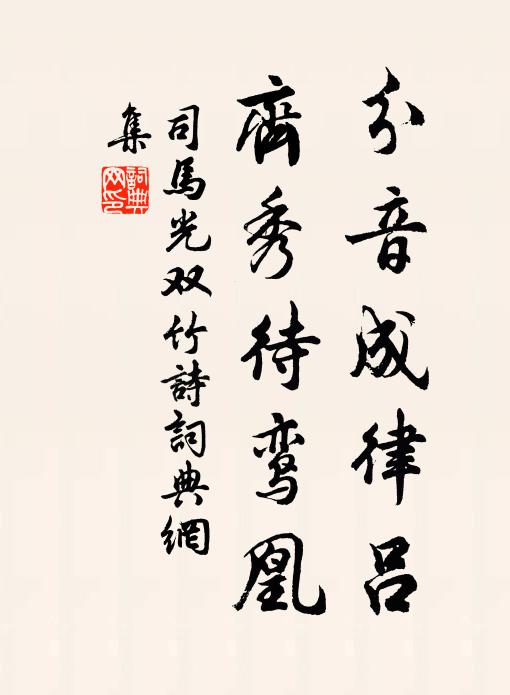 分音成律吕
齊秀待鸾凰
司馬光双竹詩詞典網
集
詞典网印